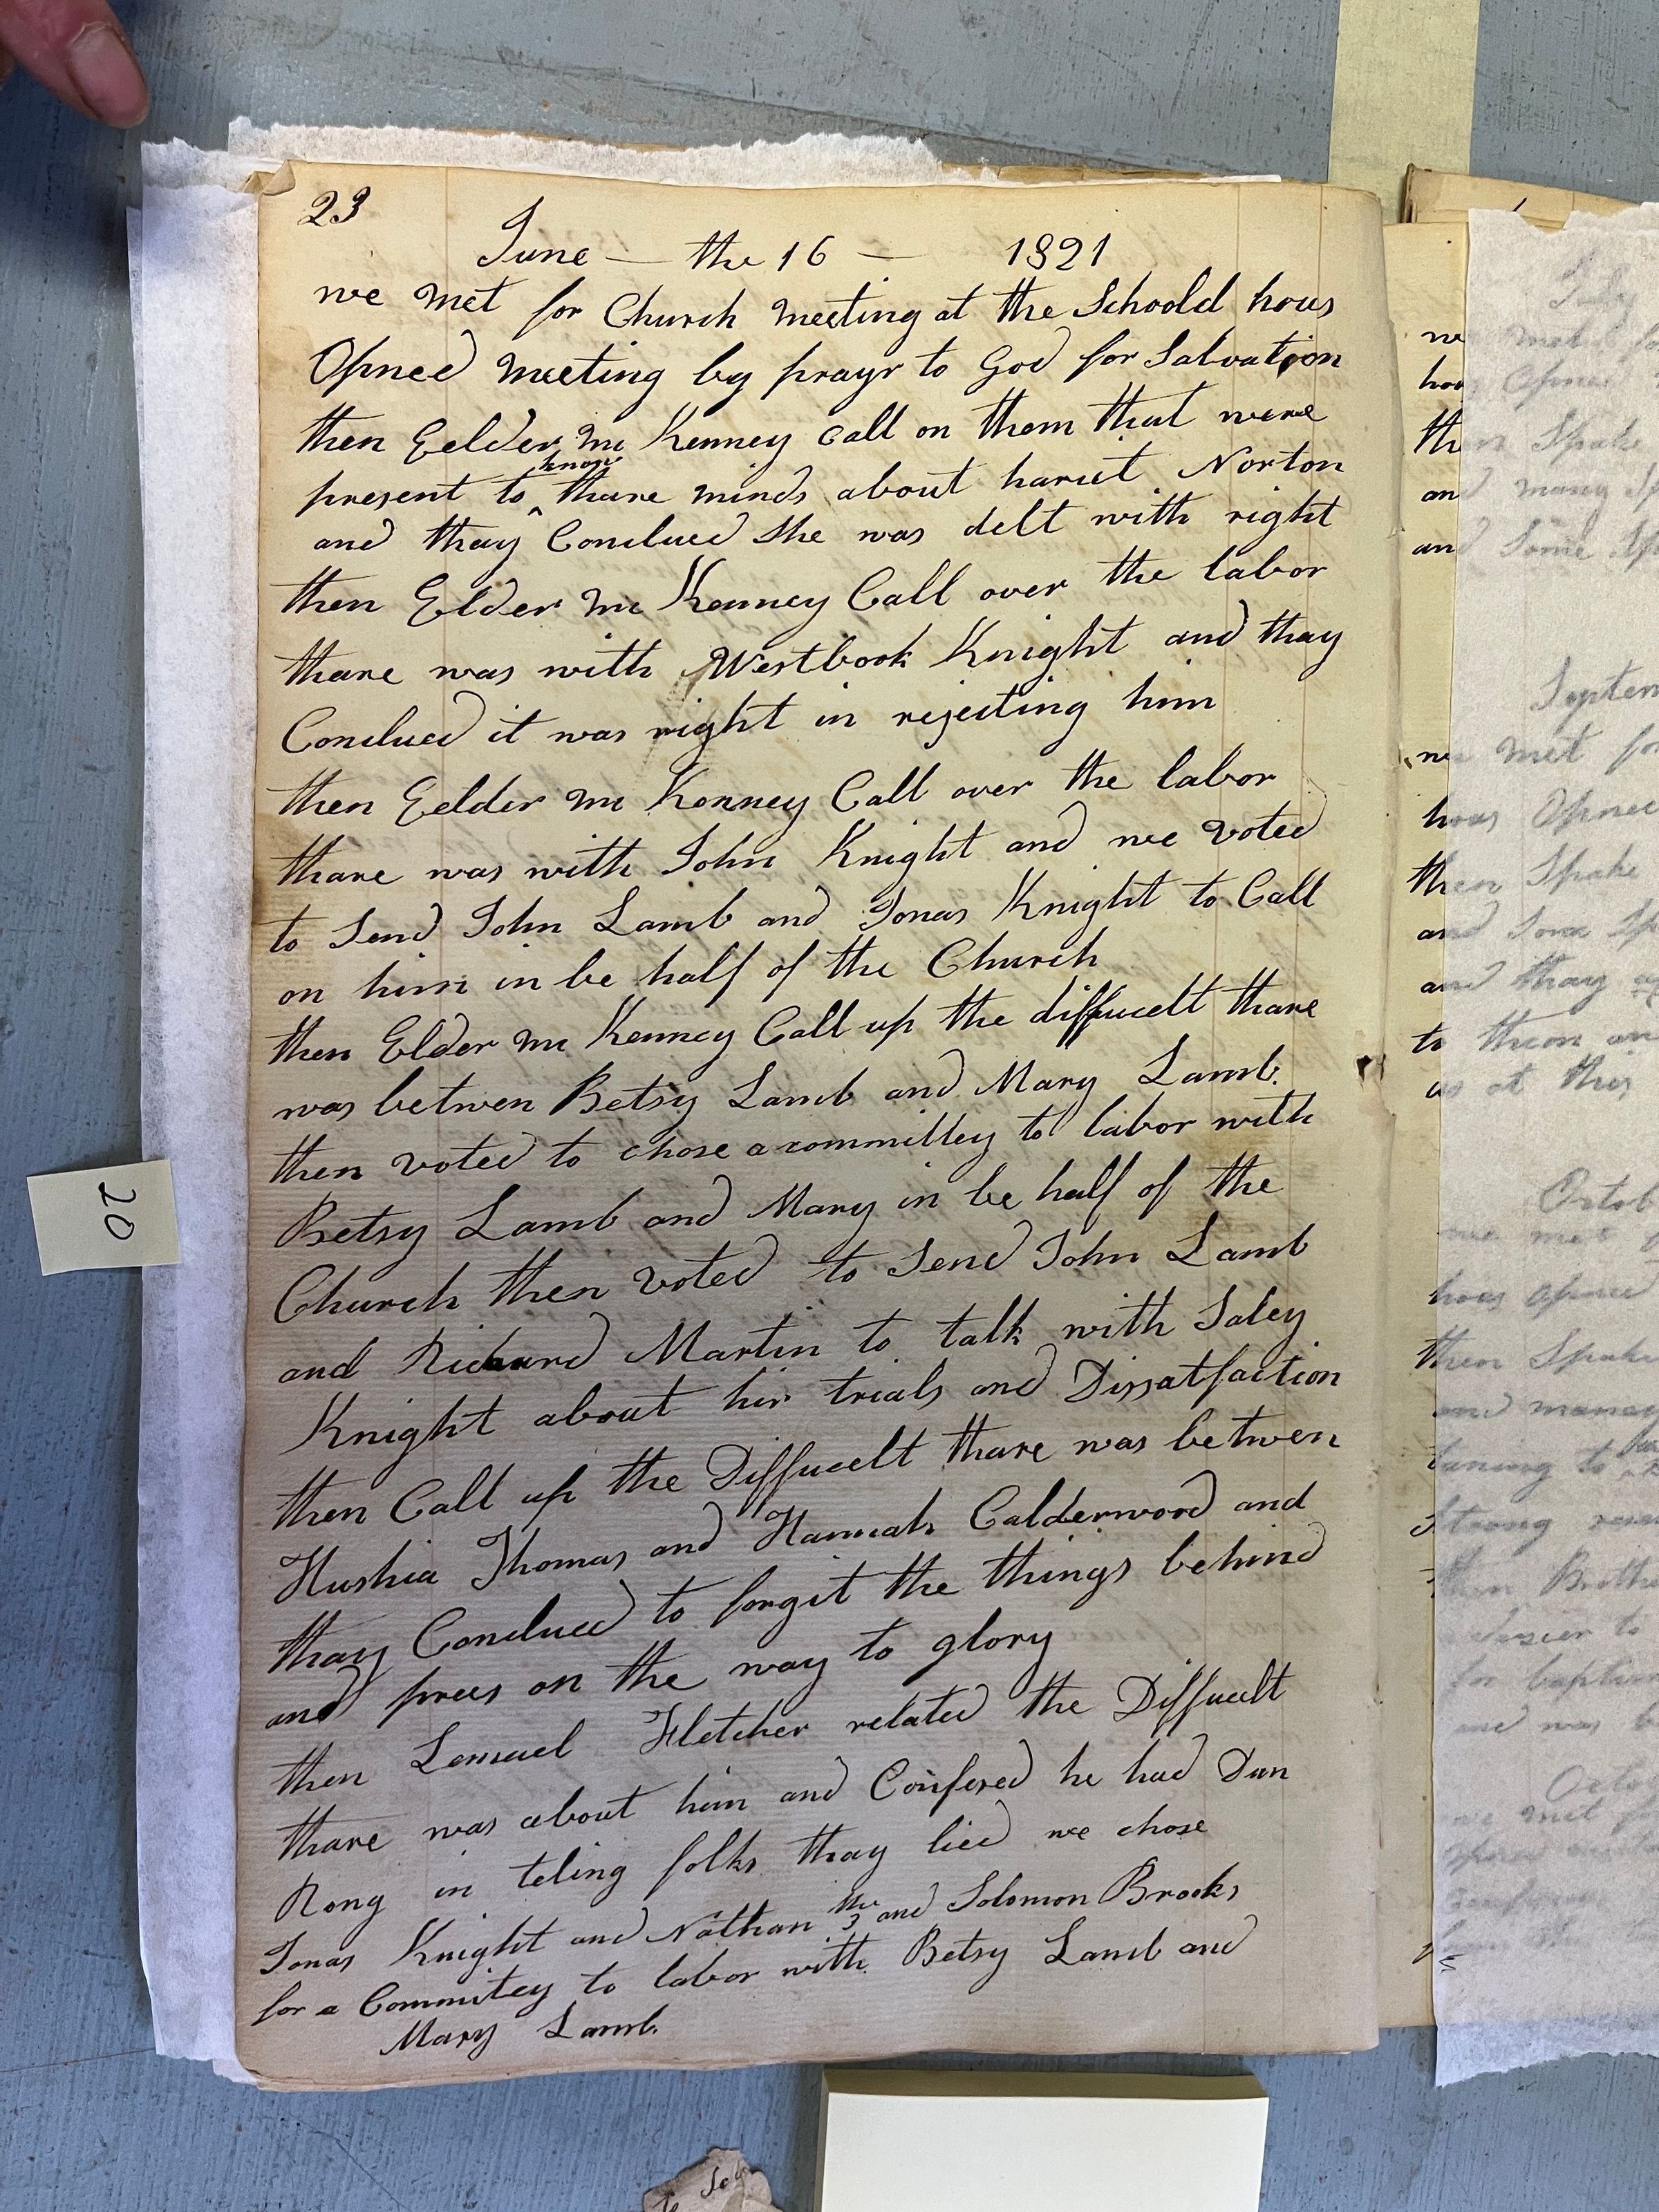 23
June — the 16 — 1821
we met for Church meeting at the Schoold hous
Opned meeting by prayr to God for Salvation
then Eelder Mc Kenney Call on them that were
know
present to ^ thare minds about hariet Norton
and thay Conclued She was delt with right
then Elder Mc Kenney Call over the labor
thare was with Westbook Knight and thay
Conclued it was right in rejecting him
then Eelder Mc Kenney Call over the labor
thare was with John Knight and we voted
to Send John Lamb and Jonas Knight to Call
on him in be half of the Church
then Elder Mc Kenney Call up the diffucelt thare
was betwen Betsy Lamb and Mary Lamb.
then voted to chose a committey to labor with
Betsy Lamb and Mary in be half of the
Church then voted to Send John Lamb
and Richard Martin to talk with Saley
Knight about hir trials and Dissatfaction
then Call up the Diffucelt thare was betwen
Hushia Thomas and Hannah Calderwood and
thay Conclued to forgit the things behind
and prees on the way to glory
then Lemuel Fletcher related the Diffucelt
thare was about him and Confesed he had Dun
Rong in teling folks thay lied we chose
Jonas Knight and Nathan the 3 and Solomon Brooks
for a Commitey to labor with Betsy Lamb and
Mary Lamb.
20
we met
hous Opned
then Spake
and many
and Some
Septem
we met for
hous Opned
then Spake
and Some
and thay
to them an
as at this
Octob
we met
hous Opned
then Spake